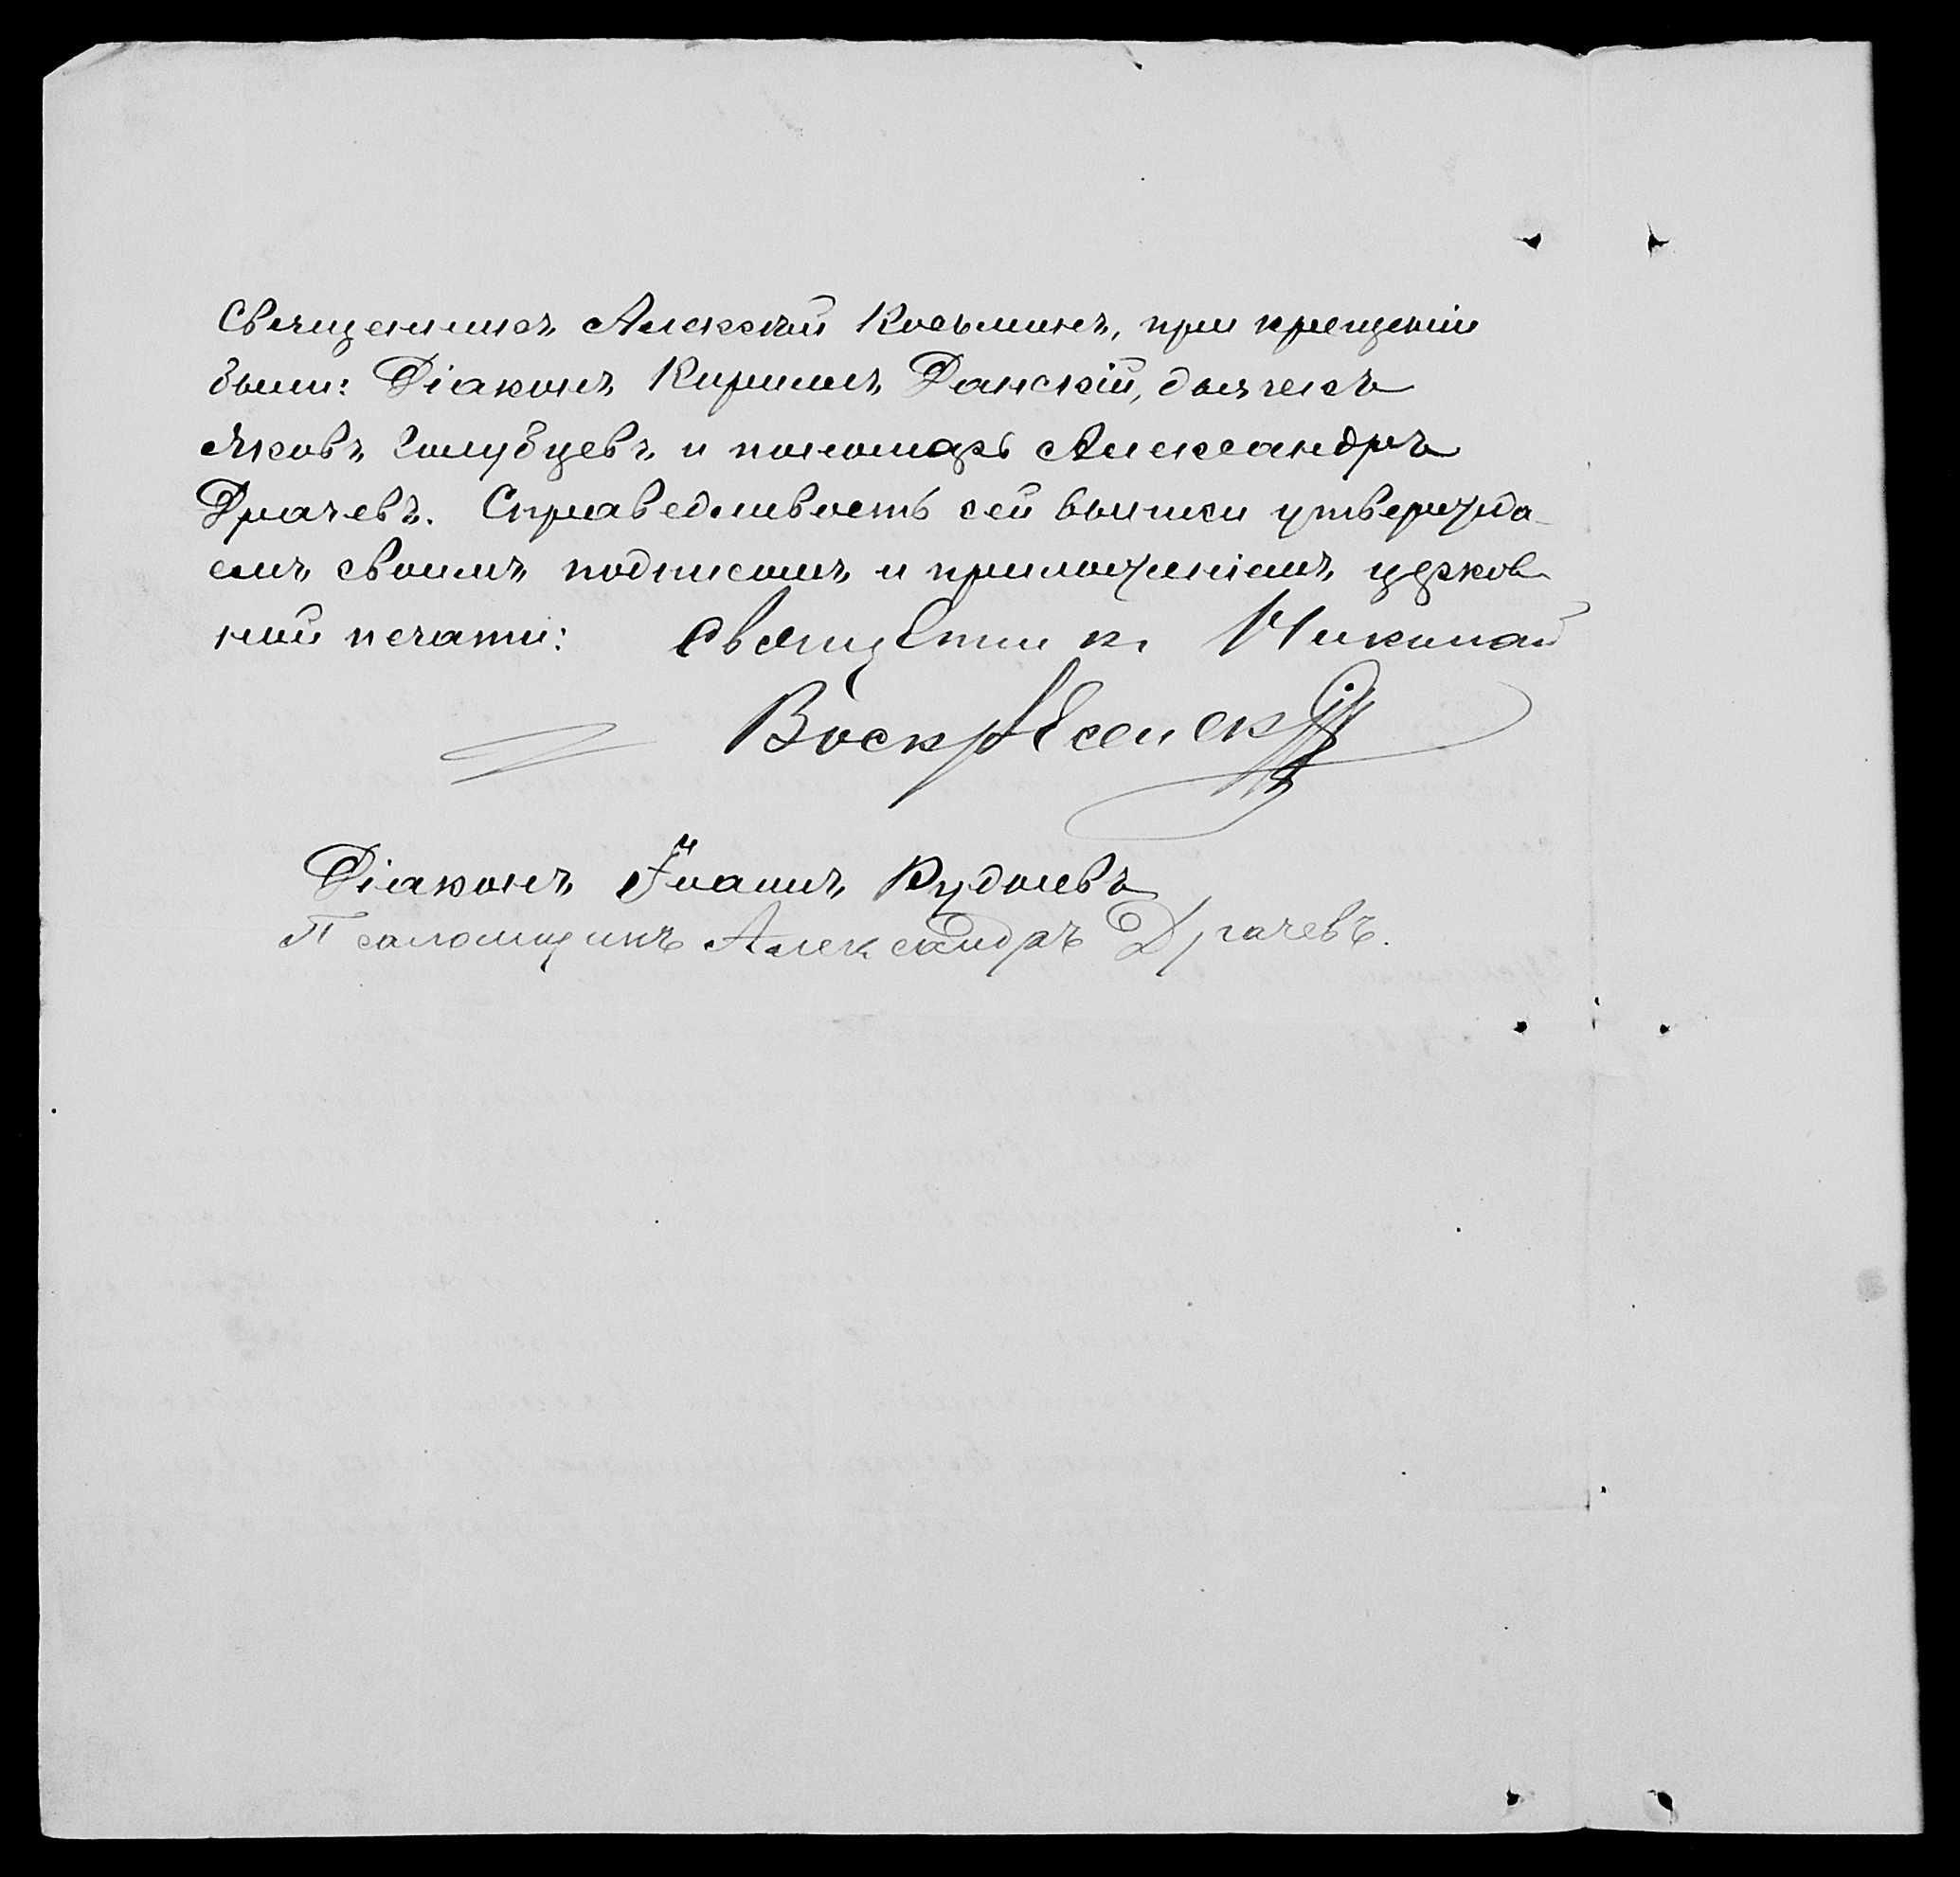 Священникъ Алексѣй Косьминъ, при крещеніи
были: Діаконъ Кириллъ Данскій, дьячекъ
Яковъ Голубцевъ и пономарь Александръ
Драчевъ. Справедливость сей выписи утвержда-
емъ своимъ подписомъ и приложеніемъ церков-
ной печати: Священникъ Николай
Воскресенскій
Діаконъ Іоаннъ Рудневъ
Псаломщикъ Александръ Драчевъ.